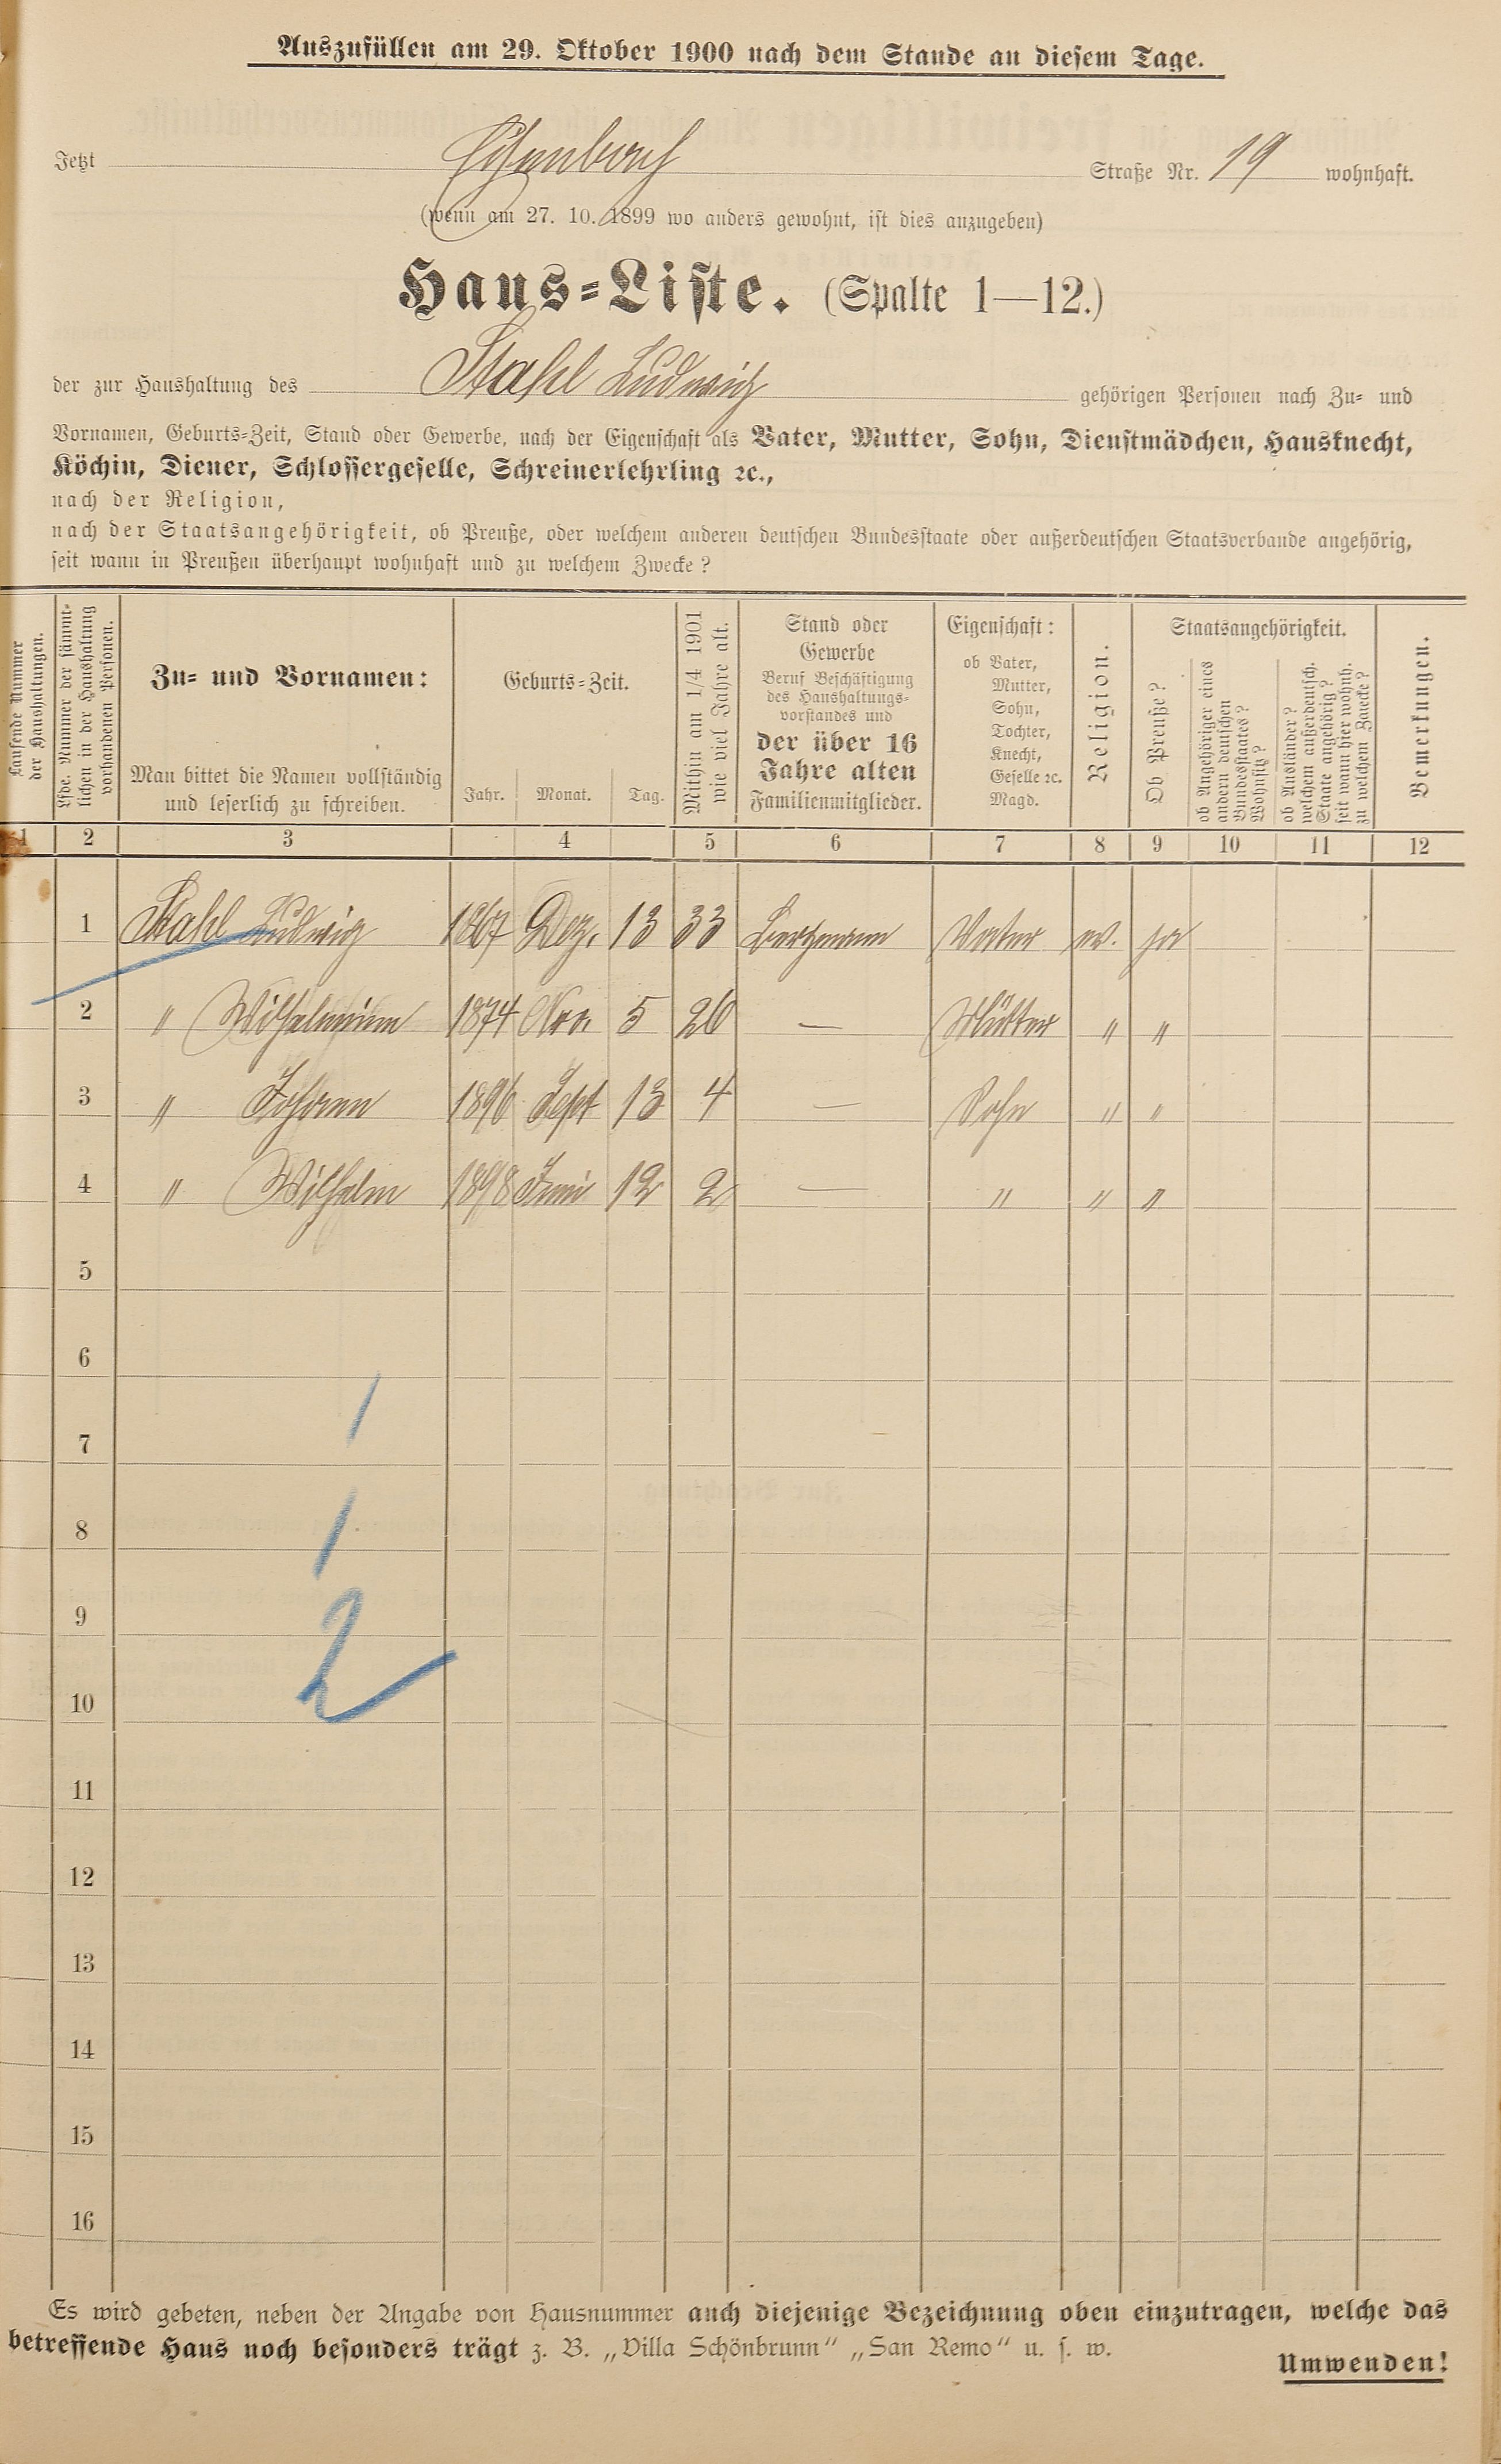 Auszufüllen am 29. Oktober 1900 nach dem Stande an diesem Tage.
Jetzt Straße Nr. 19 wohnhaft.
(wenn am 27. 10. 1899 wo anders gewohnt, ist dies anzugeben)
Haus=Liste. (Spalte 1—12.)
der zur Haushaltung des Stahl Ludwig gehörigen Personen nach Zu= und
Vornamen, Geburts=Zeit, Stand oder Gewerbe, nach der Eigenschaft als Vater, Mutter, Sohn, Dienstmädchen, Hausknecht,
Köchin, Diener, Schlossergeselle, Schreinerlehrling ꝛc.,
nach der Religion,
nach der Staatsangehörigkeit, ob Preuße, oder welchem anderen deutschen Bundesstaate oder außerdeutschen Staatsverbande angehörig,
seit wann in Preußen überhaupt wohnhaft und zu welchem Zwecke?
Laufende Nummer
der Haushaltungen.
Lfde. Nummer der sämmt=
lichen in der Haushaltung
vorhandenen Personen.
Zu= und Vornamen:
Man bittet die Namen vollständig
und leserlich zu schreiben.
Geburts=Zeit.
Jahr. Monat. Tag.
Mithin am 1/4 1901
wie viel Jahre alt.
Stand oder
Gewerbe
Beruf Beschäftigung
des Haushaltungs=
vorstandes und
der über 16
Jahre alten
Familienmitglieder.
Eigenschaft:
ob Vater,
Mutter,
Sohn,
Tochter,
Knecht,
Geselle ꝛc.
Magd.
Religion.
Staatsangehörigkeit.
Ob Preuße?
ob Angehöriger eines
andern deutschen
Bundesstaates?
Wohnsitz?
ob Ausländer?
welchem außerdeutsch.
Staate angehörig?
seit wann hier wohnh.
zu welchem Zwecke?
Bemerkungen.
1 2 3 4 5 6 7 8 9 10 11 12
1 Stahl Ludwig 1867 Dez. 13 33 Bergmann Vater ev. ja
2 " Wilhelmine 1874 Nov. 5 26 — Mutter " "
3 " Johann 1896 Sept 13 4 — Sohn " "
4 " Wilhelm 1898 Juni 12 2 — " " "
5
6
7
8
9
10
11
12
13
14
15
16
1
1
2
Es wird gebeten, neben der Angabe von Hausnummer auch diejenige Bezeichnung oben einzutragen, welche das
betreffende Haus noch besonders trägt z. B. „Villa Schönbrunn“ „San Remo“ u. s. w.
Umwenden!